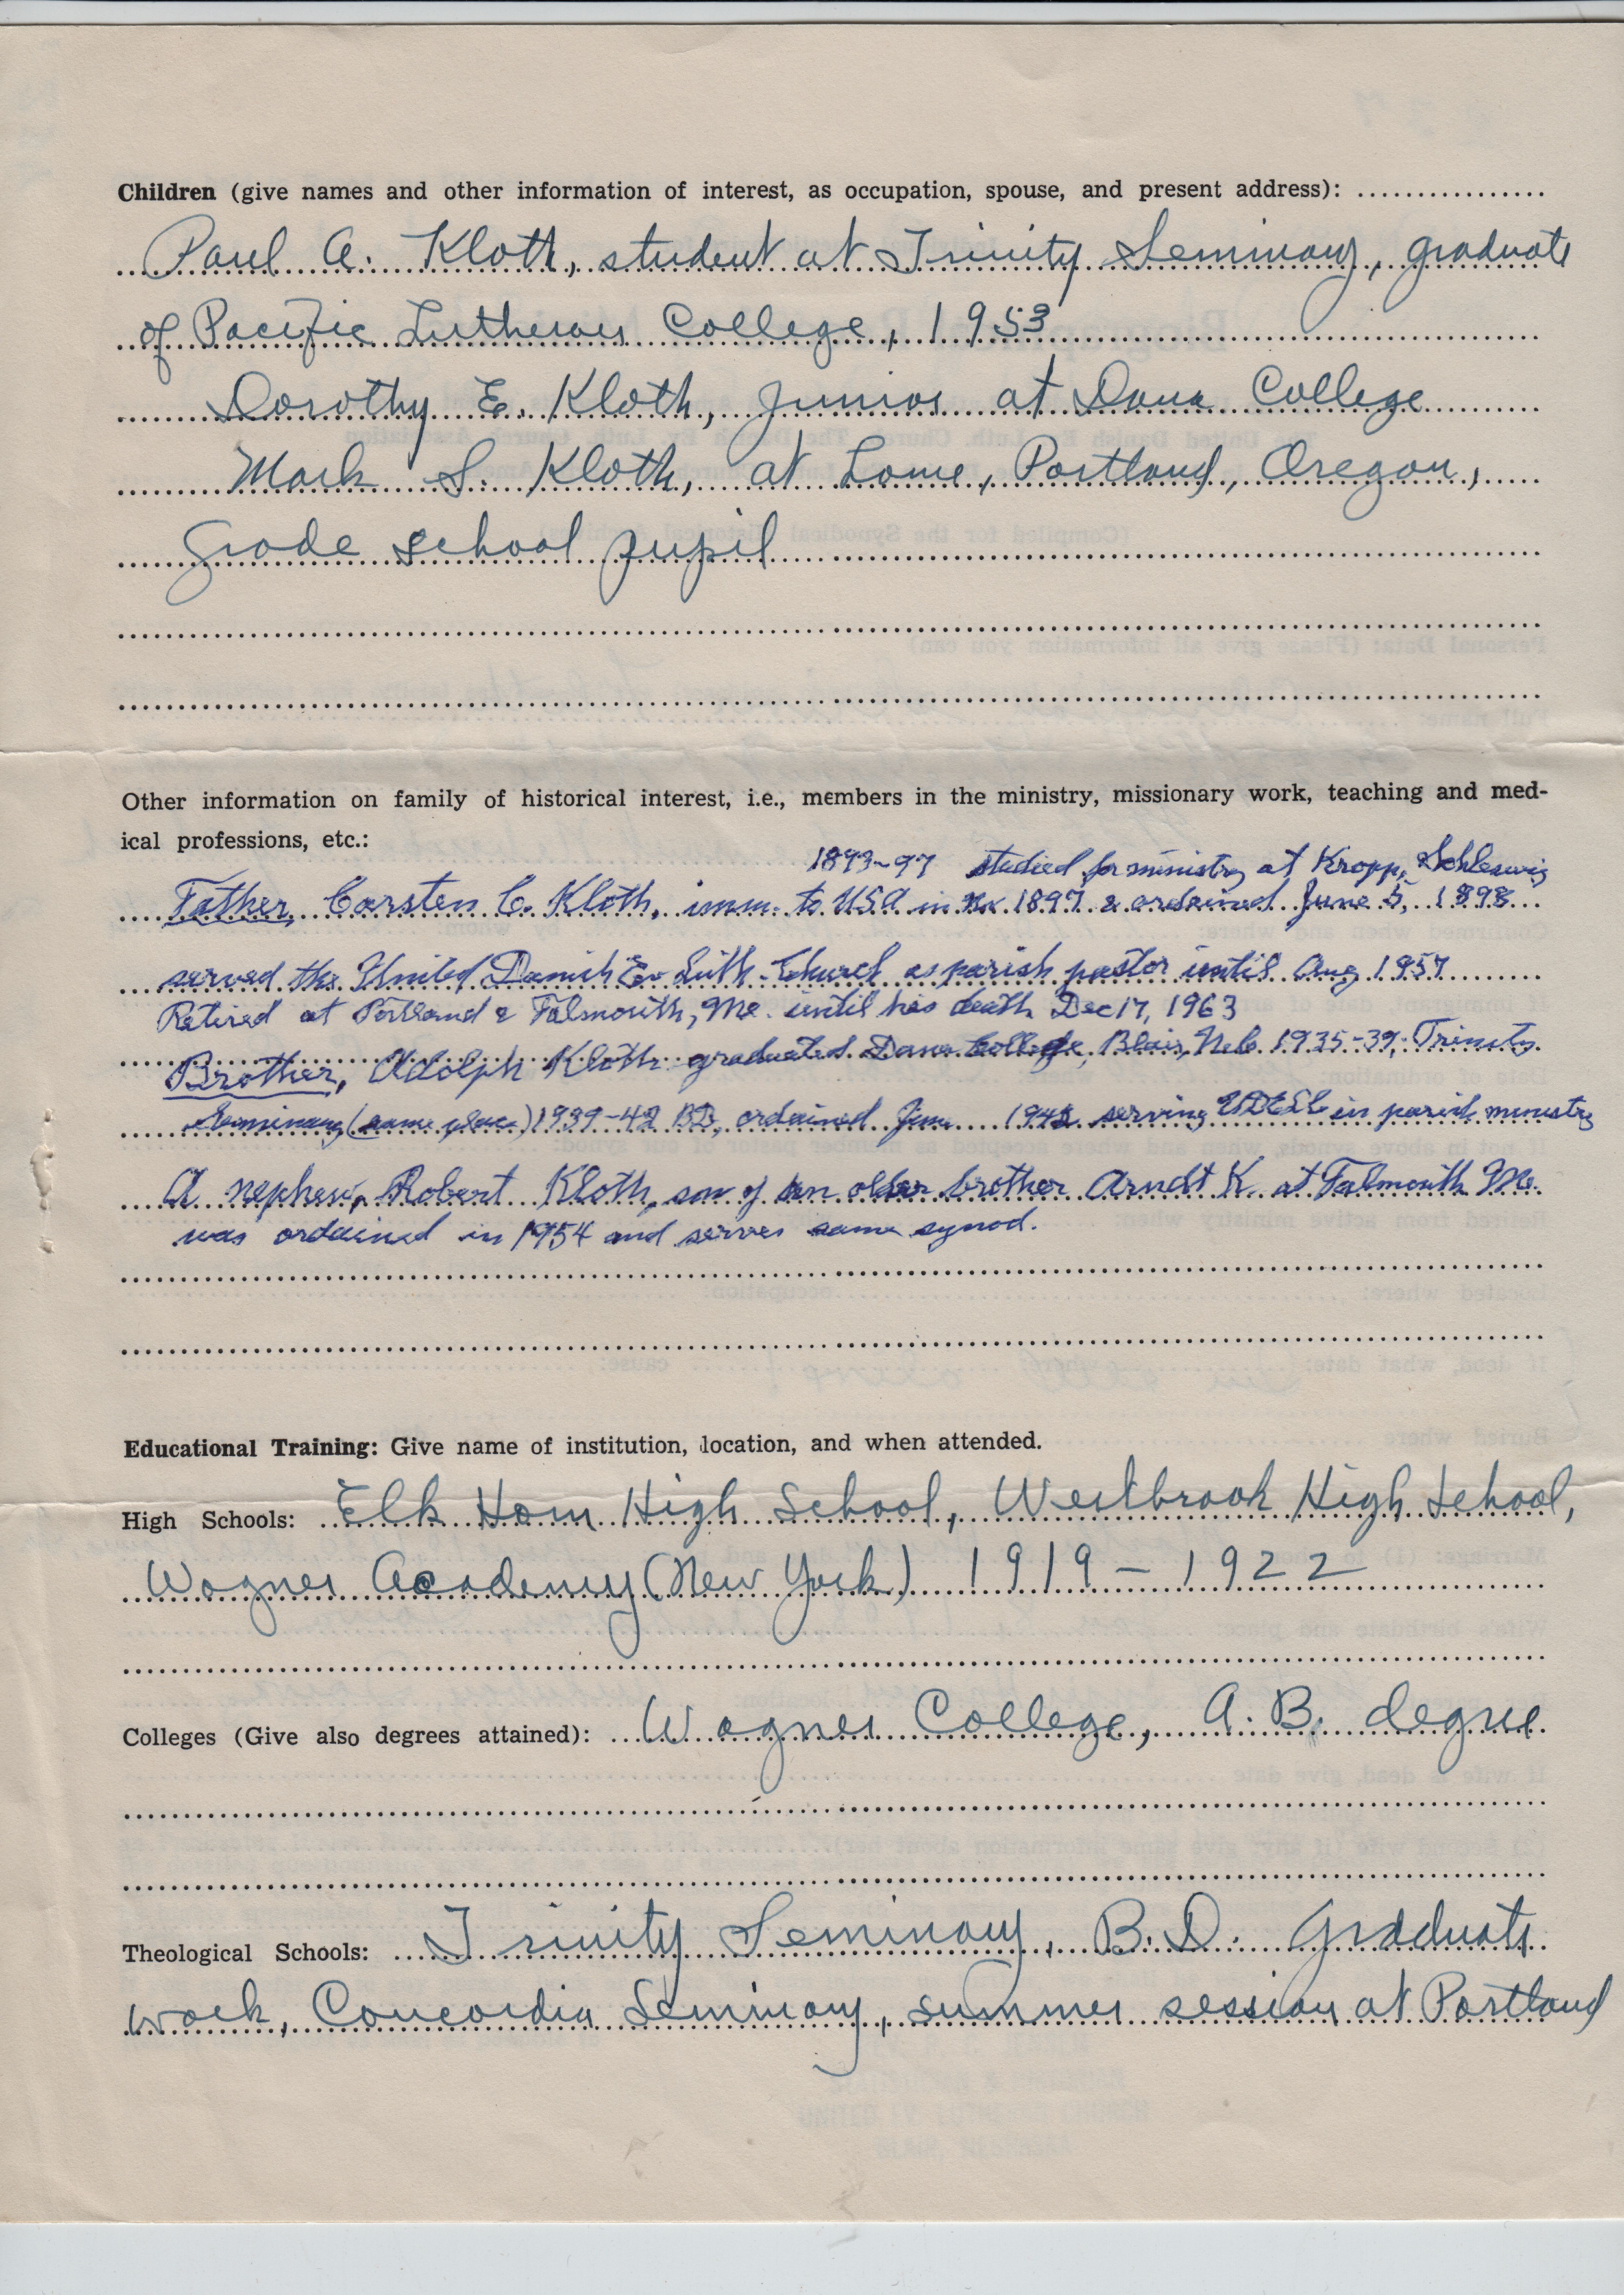 Children (give names and other information of interest, as occupation, spouse, and present address):
Paul A. Kloth, student at Trinity Seminary, graduate
of Pacific Lutheran College, 1953
Dorothy E. Kloth, junior at Dana College
Mark S. Kloth, at home, Portland, Oregon,
grade school pupil
Other information on family of historical interest, i.e., members in the ministry, missionary work, teaching and med-
ical professions, etc.:
1893-97 studied for ministry at Kropp, Schleswig
Father, Carsten C. Kloth, imm. to USA in 1897 & ordained June 5, 1898
served the United Danish Ev Luth. Church as parish pastor until Aug 1957
Retired at Portland & Falmouth, Me. until his death Dec 17, 1963
Brother, Adolph Kloth graduated Dana College, Blair, Neb. 1935-39, Trinity
Seminary (same place) 1939-42 BD, ordained June 1942 serving UDELC in parish ministry
A nephew, Robert Kloth, son of an older brother Arndt K. at Falmouth Me.
was ordained in 1954 and serves same synod.
Educational Training: Give name of institution, location, and when attended.
High Schools: Elk Horn High School, Westbrook High School,
Wagner Academy (New York) 1919 - 1922
Colleges (Give also degrees attained): Wagner College, A.B. degree
Theological Schools: Trinity Seminary, B.D. Graduate
work, Concordia Seminary, summer session at Portland